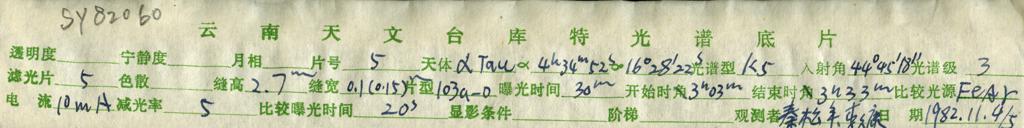 SY82060
云南天文台库特光谱底片
透明度 宁静度 月相 片号 5 天体 α Tau α 4h34m52s δ 16°28′22″ 光谱型 K5 入射角 44°45′18″ 光谱级 3
滤光片 5 色散 缝高 2.7m 缝宽 0.1(0.15)m 片型 103a-O 曝光时间 30m 开始时角 3h03m 结束时角 3h33m 比较光源 FeAr
电流 10mA 减光率 5 比较曝光时间 20s 显影条件 阶梯 观测者 日期 1982.11.4/5